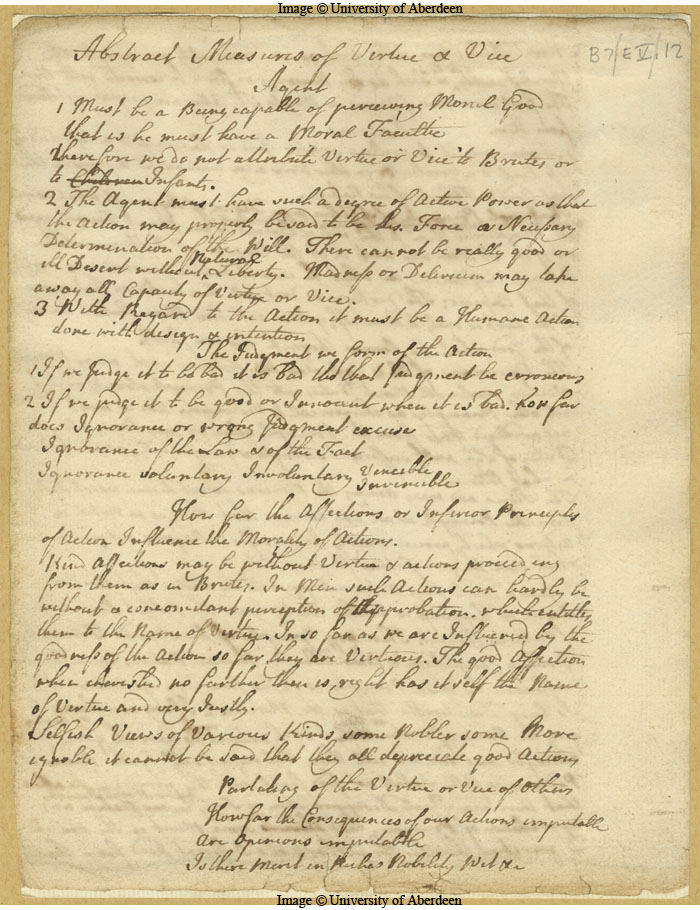 Image © University of Aberdeen
B7/EV/12
Abstract Measures of Virtue & Vice
Agent
1 Must be a Being capable of perceiving Moral Good
that is he must have a Moral Facultie
Therefore we do not attribute Virtue or Vice to Brutes or
to Children Infants.
2 The Agent must have such a degree of Active Power as that
the Action may properly be said to be his. Force or Necessary
Determination of the Will. There cannot be really good or
ill Desert without Natural Liberty. Madness or Delirium may take
away all Capacity of Virtue or Vice.
3 With Regard to the Action it must be a Humane Action
done with design & intention
The Judgment we form of the Action
1 If we judge it to be bad it is bad tho that Judgment be erroneous
2 If we judge it to be good or Innocent when it is bad. how far
does Ignorance or wrong Judgment excuse
Ignorance of the Law & of the Fact
Ignorance voluntary Involuntary Vincible
Invincible
How far the Affections or Inferior Principles
of Action Influence the Morality of Actions.
Kind Affections may be without Virtue & actions proceeding
from them as in Brutes. In Men such Actions can hardly be
without a concomitant perception of approbation. which entitles
them to the Name of Virtue. In so far as we are Influenced by the
goodness of the Action so far they are Virtuous. The good Affection
when cherished no farther then is right has itself the Name
of Virtue and very Justly.
Selfish Views of Various Kinds, some Nobler some More
ignoble it cannot be said that they all depreciate good Actions
Partaking of the Virtue or Vice of Others
How far the Consequences of our Actions imputable
Are Opinions imputable
Is there Merit in Riches Nobility Wit &c
Image © University of Aberdeen